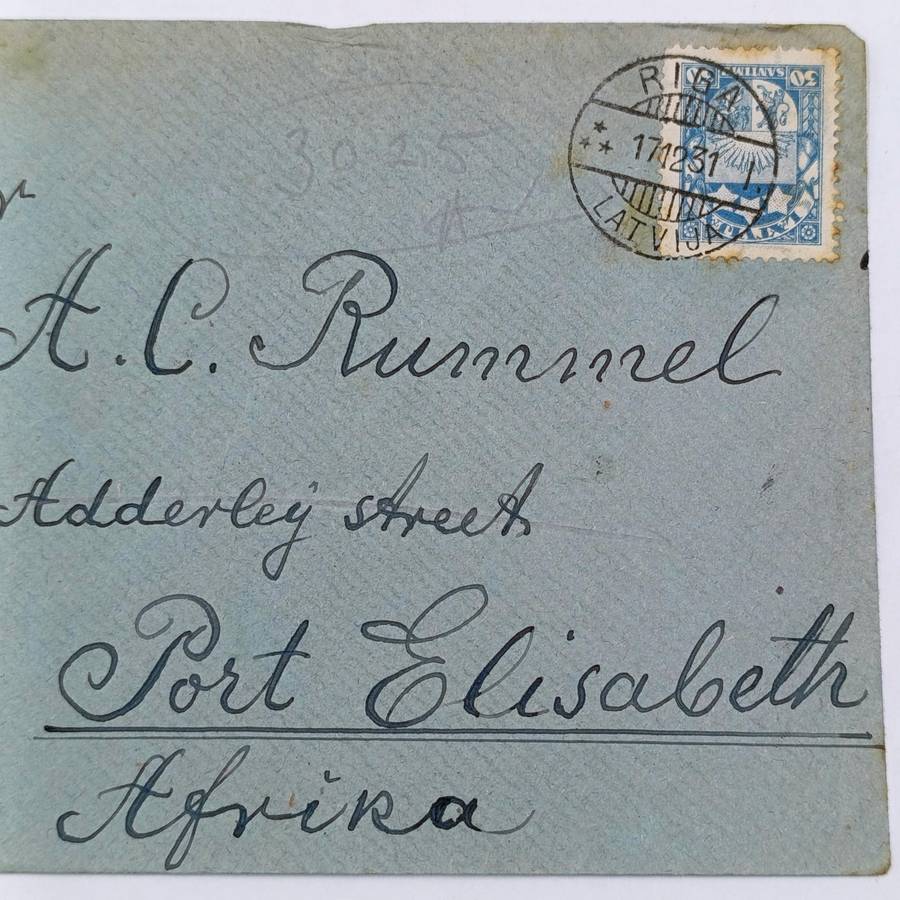 RIGA
17.12.31 I.
LATVIJA
50 SANTIMU 50
LATVIJA
3025
A. C. Rummel
Adderley street
Port Elisabeth
Afrika